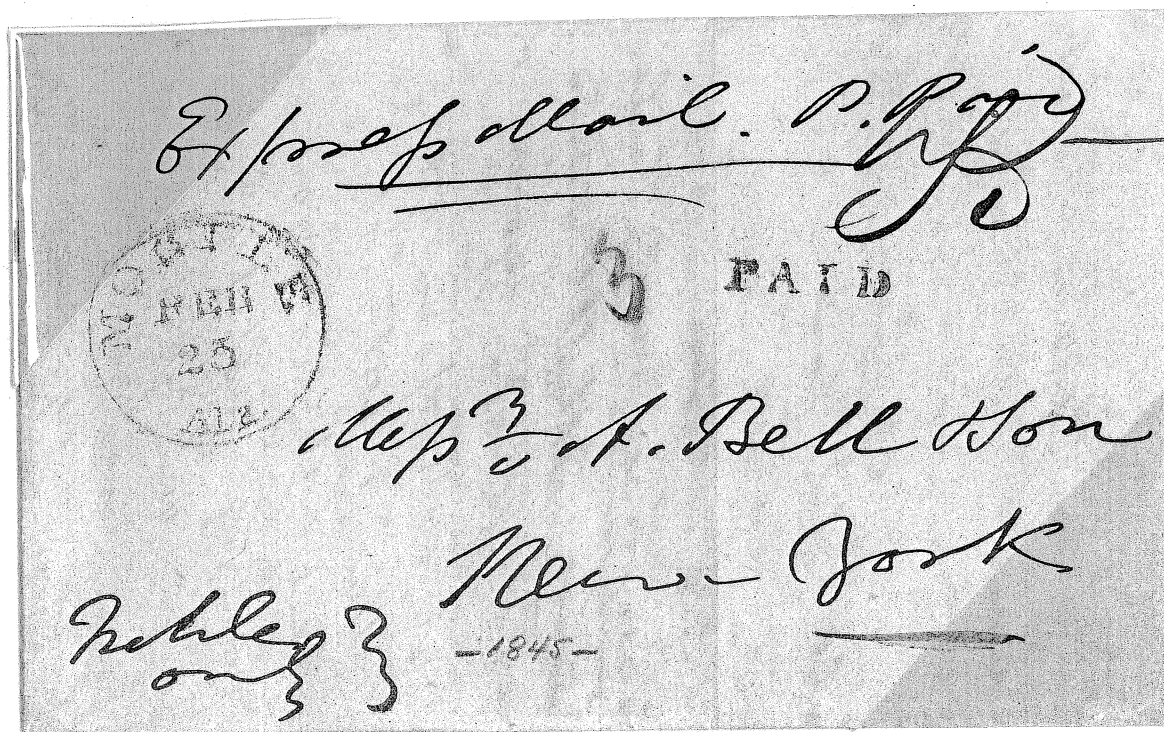 Express Mail. P. Paid
MOBILE
FEB
25
Ala.
3 PAID
Messrs A. Bell & Son
New-York
-1845-